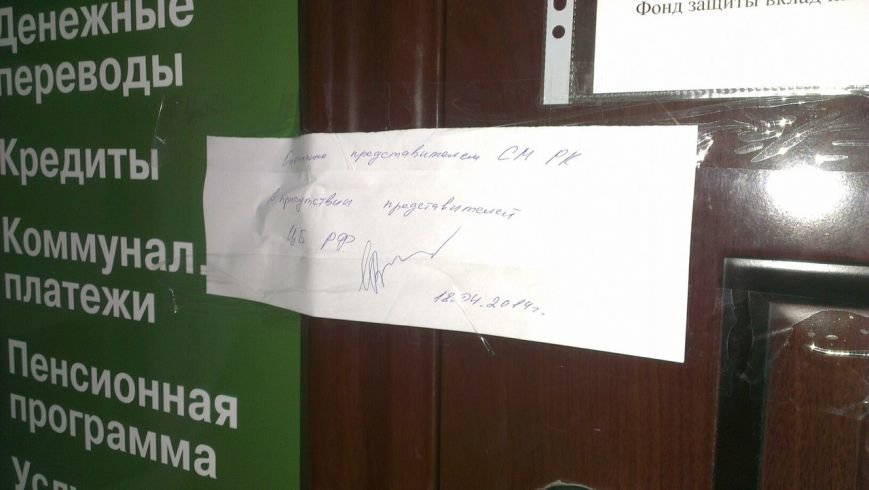 Денежные
переводы
Кредиты
Коммунал.
платежи
Пенсионная
программа
Фонд защиты
представителем СМ РК
в присутствии представителей
ЦБ РФ
18.04.2014г.